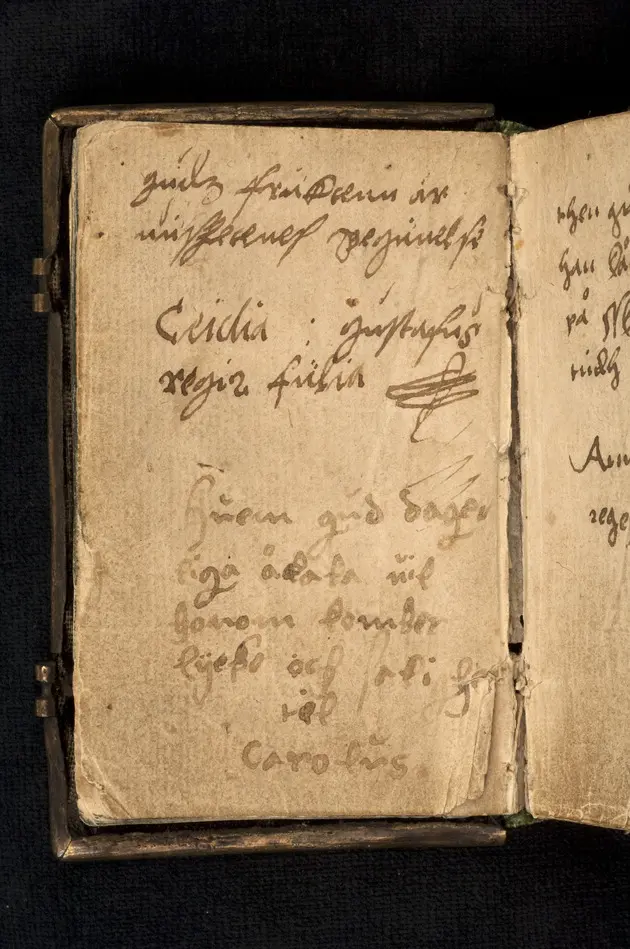 gudz fruktenn är
wisheenes begünelse
Cecilia : gustafus
regis filia
huem gud dager
liga åkala uil
honom komber
lycko och sali het
til
Carolus
then gu
han
på
tiidh
An
rege